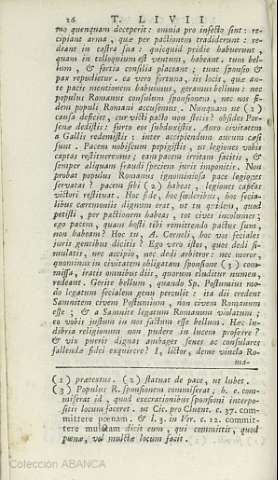 26 T. LIVII
mo quenquam deceperit: omnia pro infecto sint: re-
cipiant arma, quæ per pactionem tradiderunt: re-
deant in castra sua: quicquid pridie habuerunt,
quam in colloquium est ventum, habeant. tum bel-
lum, & fortia consilia placeant; tunc sponsio &
pax repudietur. ea vero fortuna, iis locis, quæ an-
te pacis mentionem habuimus, geramus bellum: nec
populus Romanus consulum sponsionem, nec nos fi-
dem populi Romani accusemus. Nunquamne (1)
causa deficiet, cur victi pacto non stetis? obsides Por-
senæ dedistis: furto eos subduxistis. auro civitatem
a Gallis redemistis: inter accipiendum aurum cæsi
sunt. Pacem nobiscum pepigistis, ut legiones vobis
captas restitueremus: eam pacem irritam facitis, &
semper aliquam fraudi speciem juris imponitis. Non
probat populus Romanus ignominiosa pace legiones
servatas? pacem sibi (2) habeat, legiones captas
victori restituat. Hoc fide, hoc fœderibus, hoc fecia-
libus cæremoniis dignum erat. ut tu quidem, quod
petisti, per pactionem habeas, tot cives incolumes;
ego pacem, quam hosti tibi remittendo pactus sum,
non habeam? Hoc tu, A. Corneli, hoc vos feciales
juris gentibus dicitis? Ego vero istos, quos dedi si-
mulatis, nec accipio, nec dedi arbitror: nec moror,
quominus in civitatem obligatam sponsione (3) com-
missa, iratis omnibus diis, quorum eluditur numen,
redeant. Gerite bellum, quando Sp. Postumius mo-
do legatum fecialem genu perculit: ita dii credent
Samnitem civem Postumium, non civem Romanum
esse; & a Samnite legatum Romanum violatum;
eo vobis justum in nos factum esse bellum. Hæc lu-
dibria religionum non pudere in lucem proferre?
& vix pueris dignas ambages senes ac consulares
fallendæ fidei exquirere? I, lictor, deme vincla Ro-
ma-
(1) prætereas. (2) statuat de pace, ut lubet.
(3) Populus R. sponsionem commiserat, h. e. com-
miserat id, quod execrationibus sponsioni interpo-
sitis locum faceret. ut Cic. pro Cluent. c. 37. com-
mittere pœnam. & l. 3. in Ver. c. 12. commit-
tere multam dicit eum, qui committit, quod
pœnæ, vel multæ locum facit.
Colección ABANCA